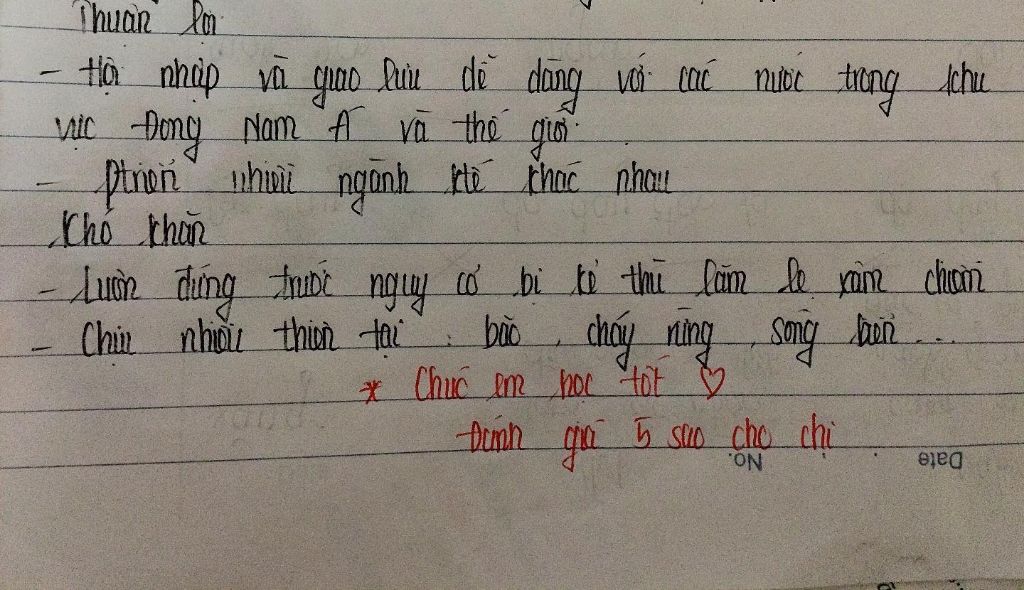 Thuận lợi
- Hội nhập và giao lưu dễ dàng với các nước trong khu
vực Đông Nam Á và thế giới.
- Ptriển nhiều ngành ktế khác nhau
Khó khăn
- Luôn đứng trước nguy cơ bị kẻ thù lăm le xâm chiếm
- Chịu nhiều thiên tai: bão, cháy rừng, sóng biển...
* Chúc em học tốt ♡
Đánh giá 5 sao cho chị
No.
Date